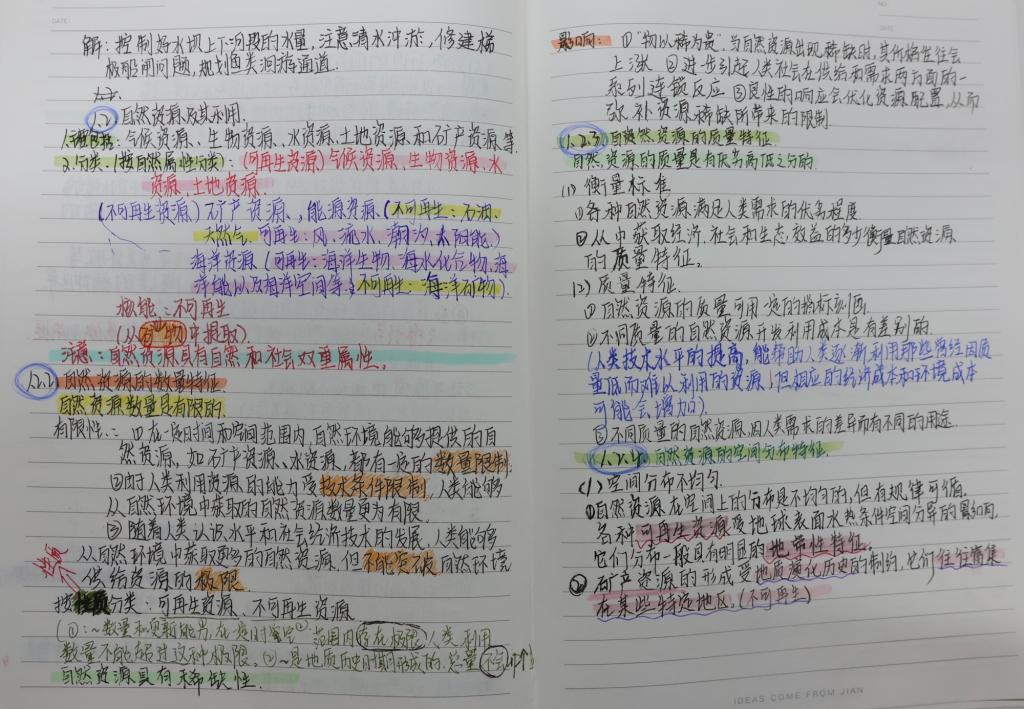 解：控制好水坝上下河段的水量，注意清水冲刷，修建梯
级船闸问题，规划鱼类洄游通道.
1.2 自然资源及其利用.
1.包括：气候资源、生物资源、水资源、土地资源和矿产资源等
2.分类：(按自然属性分类)：(可再生资源)气候资源、生物资源、水
资源、土地资源.
(不可再生资源)矿产资源、能源资源(不可再生：石油、
天然气. 可再生：风、流水、潮汐、太阳能.)
海洋资源(可再生：海洋生物、海水化合物、海
洋能以及海洋空间等；不可再生：海洋矿物).
核能：不可再生
(从矿物中提取).
注意：自然资源具有自然和社会双重属性。
1.2.2 自然资源的数量特征
自然资源数量是有限的.
有限性：①在一定时间和空间范围内，自然环境能够提供的自
然资源，如矿产资源、水资源，都有一定的数量限制
②由于人类利用资源的能力受技术条件限制，人类能够
从自然环境中获取的自然资源数量更为有限.
③随着人类认识水平和社会经济技术的发展，人类能够
从自然环境中获取更多的自然资源，但不能突破自然环境
供给资源的极限
分类：可再生资源、不可再生资源
(①：~数量和更新能力，在一定时空范围内存在极限，人类利用
数量不能超过这种极限。②~是地质历史时期形成的，总量不会
自然资源具有稀缺性.
影响：①“物以稀为贵”，当自然资源出现稀缺时，其价格往往会
上涨 ②进一步引起人类社会在供给和需求两方面的一
系列连锁反应 ③良性的响应会优化资源配置，从而
弥补资源稀缺所带来的限制.
1.2.3 自然资源的质量特征
自然资源的质量是有优劣高低之分的.
(1) 衡量标准
①各种自然资源满足人类需求的优劣程度
②从中获取经济、社会和生态效益的多少衡量自然资源
的质量特征。
(2) 质量特征.
①自然资源的质量可用一定的指标刻画.
②不同质量的自然资源开发利用成本是有差别的.
(人类技术水平的提高，能帮助人类逐渐利用那些曾经因质
量低而难以利用的资源，但相应的经济成本和环境成本
可能会增加).
③不同质量的自然资源因人类需求的差异而有不同的用途.
1.2.4 自然资源的空间分布特征.
(1) 空间分布不均匀.
①自然资源在空间上的分布是不均匀的，但有规律可循.
各种可再生资源受地球表面水热条件空间分异的影响，
它们分布一般具有明显的地带性特征.
② 矿产资源的形成受地质演化历史的制约，它们往往富集
在某些特定地区.(不可再生)
IDEAS COME FROM JIAN